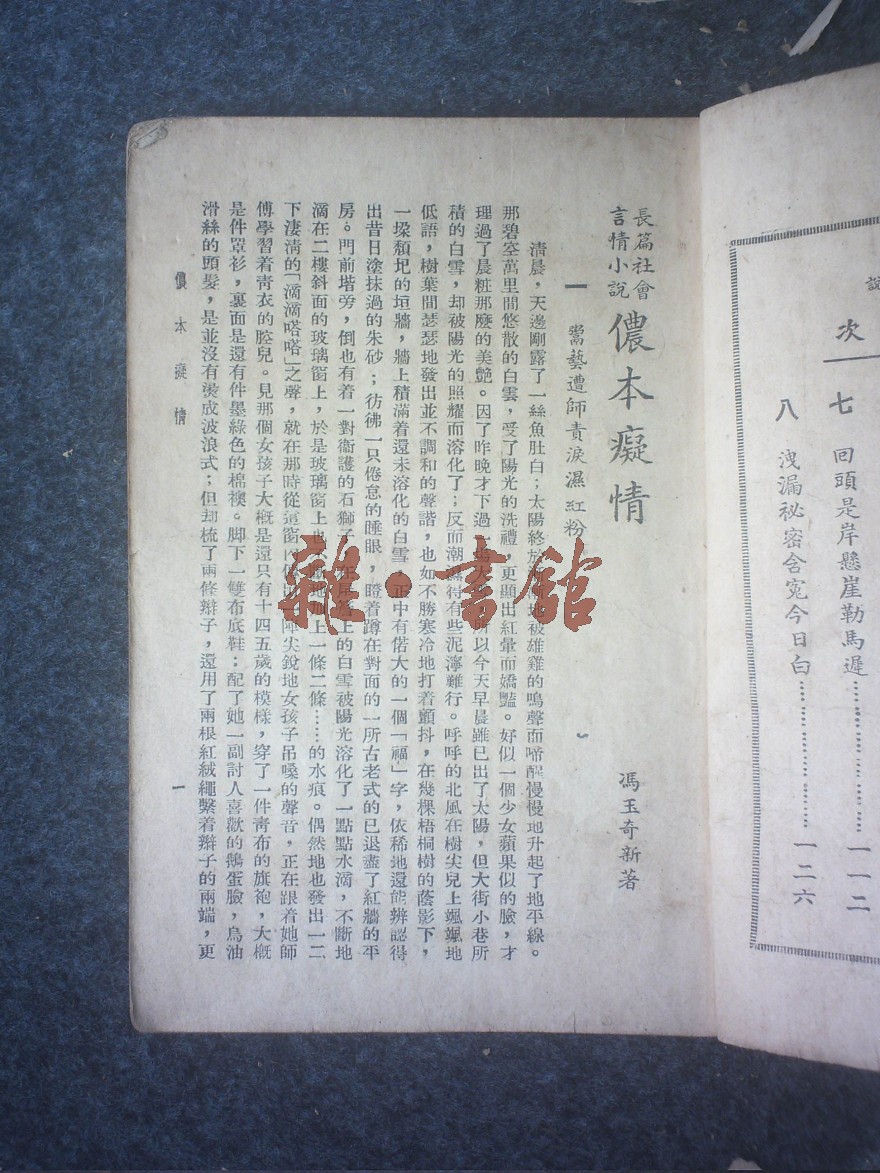 次
七 回頭是岸懸崖勒馬遲 一一二
八 洩漏秘密含寃今日白 一二六
長篇社會
言情小說
儂本癡情
馮玉奇新著
一 鬻藝遭師責淚濕紅粉
清晨，天邊剛露了一絲魚肚白；太陽終於 被雄雞的鳴聲而啼醒慢慢地升起了地平線。
那碧空萬里間悠散的白雲，受了陽光的洗禮，更顯出紅暈而嬌豔。好似一個少女蘋果似的臉，才
理過了晨粧那麼的美艷。因了昨晚才下過 所以今天早晨雖已出了太陽，但大街小巷所
積的白雪，却被陽光的照耀而溶化了；反而潮濕得有些泥濘難行。呼呼的北風在樹尖兒上颯颯地
低語，樹葉間瑟瑟地發出並不調和的聲諧，也如不勝寒冷地打着顫抖，在幾棵梧桐樹的蔭影下，
一垜頹圯的垣牆，牆上積滿着還未溶化的白雪 正中有偌大的一個「福」字，依稀地還能辨認得
出昔日塗抹過的朱砂；彷彿一只倦怠的睡眼，瞪着蹲在對面的一所古老式的已退盡了紅牆的平
房。門前堦旁，倒也有着一對衞護的石獅子 上的白雪被陽光溶化了一點點水滴，不斷地
滴在二樓斜面的玻璃窗上，於是玻璃窗上也 地加上一條二條……的水痕。偶然地也發出一二
下淒清的「滴滴嗒嗒」之聲，就在那時從這窗 一陣尖銳地女孩子吊嗓的聲音，正在跟着她師
傅學習着靑衣的腔兒。見那個女孩子大概是還只有十四五歲的模樣，穿了一件靑布的旗袍，大概
是件罩衫，裏面是還有件墨綠色的棉襖。脚下一雙布底鞋；配了她一副討人喜歡的鵝蛋臉，烏油
滑絲的頭髮，是並沒有燙成波浪式；但却梳了兩條辮子，還用了兩根紅絨繩繫着辮子的兩端，更
儂本癡情
一
雜·書館